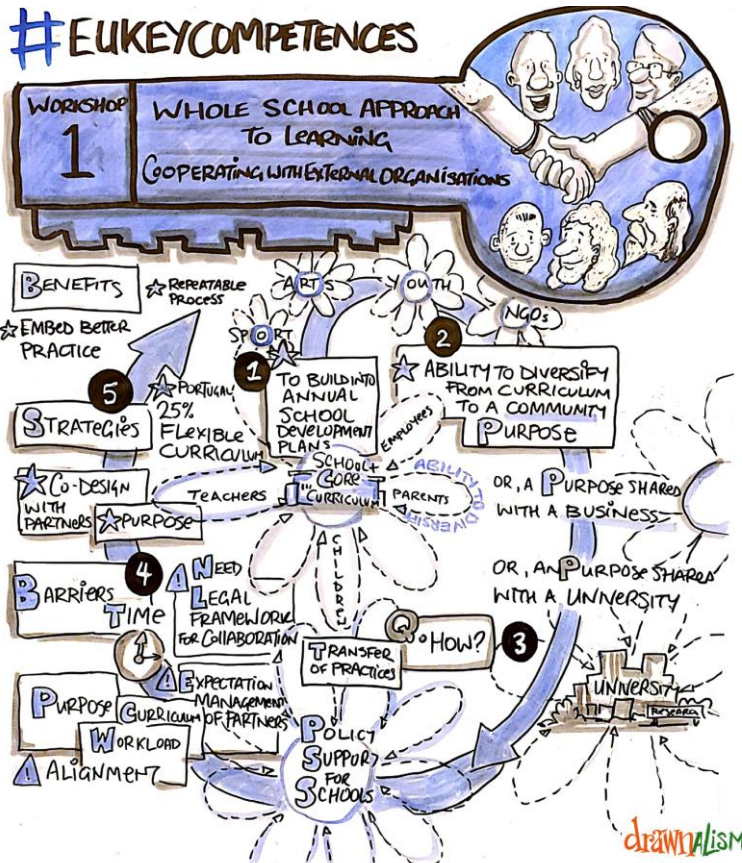 #EUKEYCOMPETENCES
WORKSHOP
1
WHOLE SCHOOL APPROACH
TO LEARNING
COOPERATING WITH EXTERNAL ORGANISATIONS
BENEFITS
REPEATABLE
PROCESS
EMBED BETTER
PRACTICE
ARTS
YOUTH
NGOs
SPORT
1
TO BUILD INTO
ANNUAL
SCHOOL
DEVELOPMENT
PLANS
2
ABILITY TO DIVERSIFY
FROM CURRICULUM
TO A COMMUNITY
PURPOSE
5
STRATEGIES
PORTUGAL
25%
FLEXIBLE
CURRICULUM
CO-DESIGN
WITH
PARTNERS
PURPOSE
SCHOOL+
CORE
CURRICULUM
TEACHERS
EMPLOYEES
PARENTS
CHILDREN
ABILITY TO DIVERSIFY
OR, A PURPOSE SHARED
WITH A BUSINESS
OR, AN PURPOSE SHARED
WITH A UNIVERSITY
UNIVERSITY
RESEARCH
4
BARRIERS
TIME
NEED
LEGAL
FRAMEWORK
FOR COLLABORATION
EXPECTATION
MANAGEMENT
OF PARTNERS
PURPOSE
CURRICULUM
WORKLOAD
ALIGNMENT
TRANSFER
OF PRACTICES
Q. HOW?
3
POLICY
SUPPORT
FOR
SCHOOLS
drawnalism